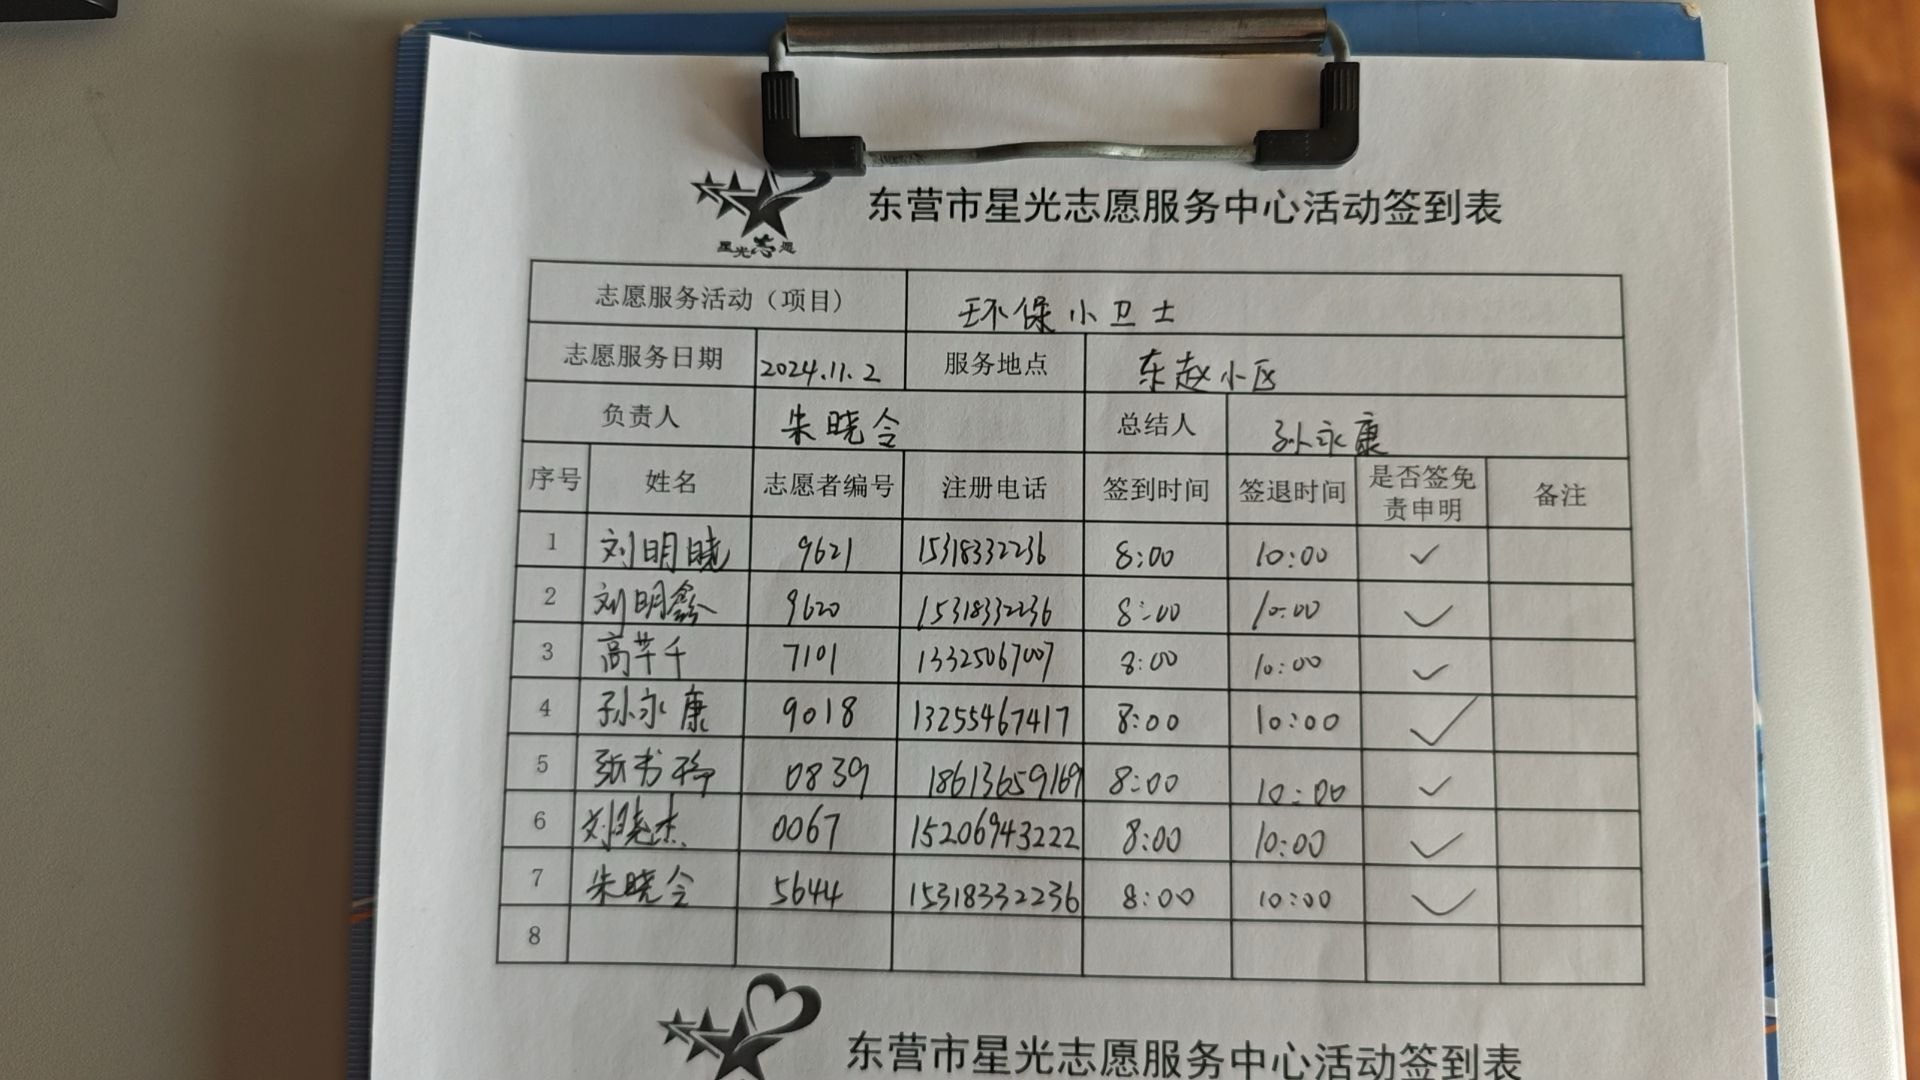 星光志愿
东营市星光志愿服务中心活动签到表
志愿服务活动（项目） 环保小卫士
志愿服务日期 2024.11.2 服务地点 东赵小区
负责人 朱晓令 总结人 孙永康
序号 姓名 志愿者编号 注册电话 签到时间 签退时间 是否签免责申明 备注
1 刘明晓 9621 15318332236 8:00 10:00 ✓
2 刘明鑫 9620 15318332236 8:00 10:00 ✓
3 高芊千 7101 13325067007 8:00 10:00 ✓
4 孙永康 9018 13255467417 8:00 10:00 ✓
5 张书 0839 18613659169 8:00 10:00 ✓
6 刘晓杰 0067 15206943222 8:00 10:00 ✓
7 朱晓令 5644 15318332236 8:00 10:00 ✓
8
东营市星光志愿服务中心活动签到表